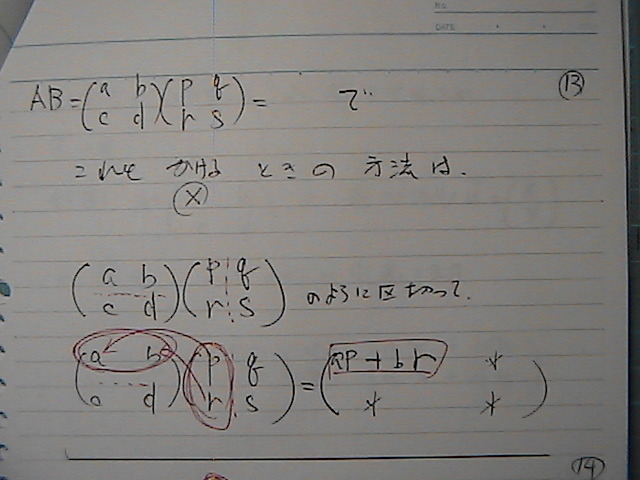 NO.
DATE
AB=(a b c d)(p q r s)= で ⑬
これを かける ときの 方法は.
ⓧ
(a b c d)(p q r s) のように区切って.
(a b c d)(p q r s)=(ap+br * * *)
⑭